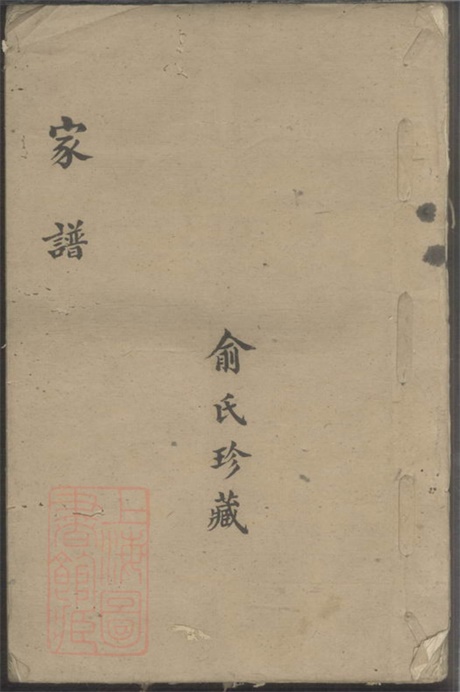 家譜
俞氏珍藏
上海圖
書館藏